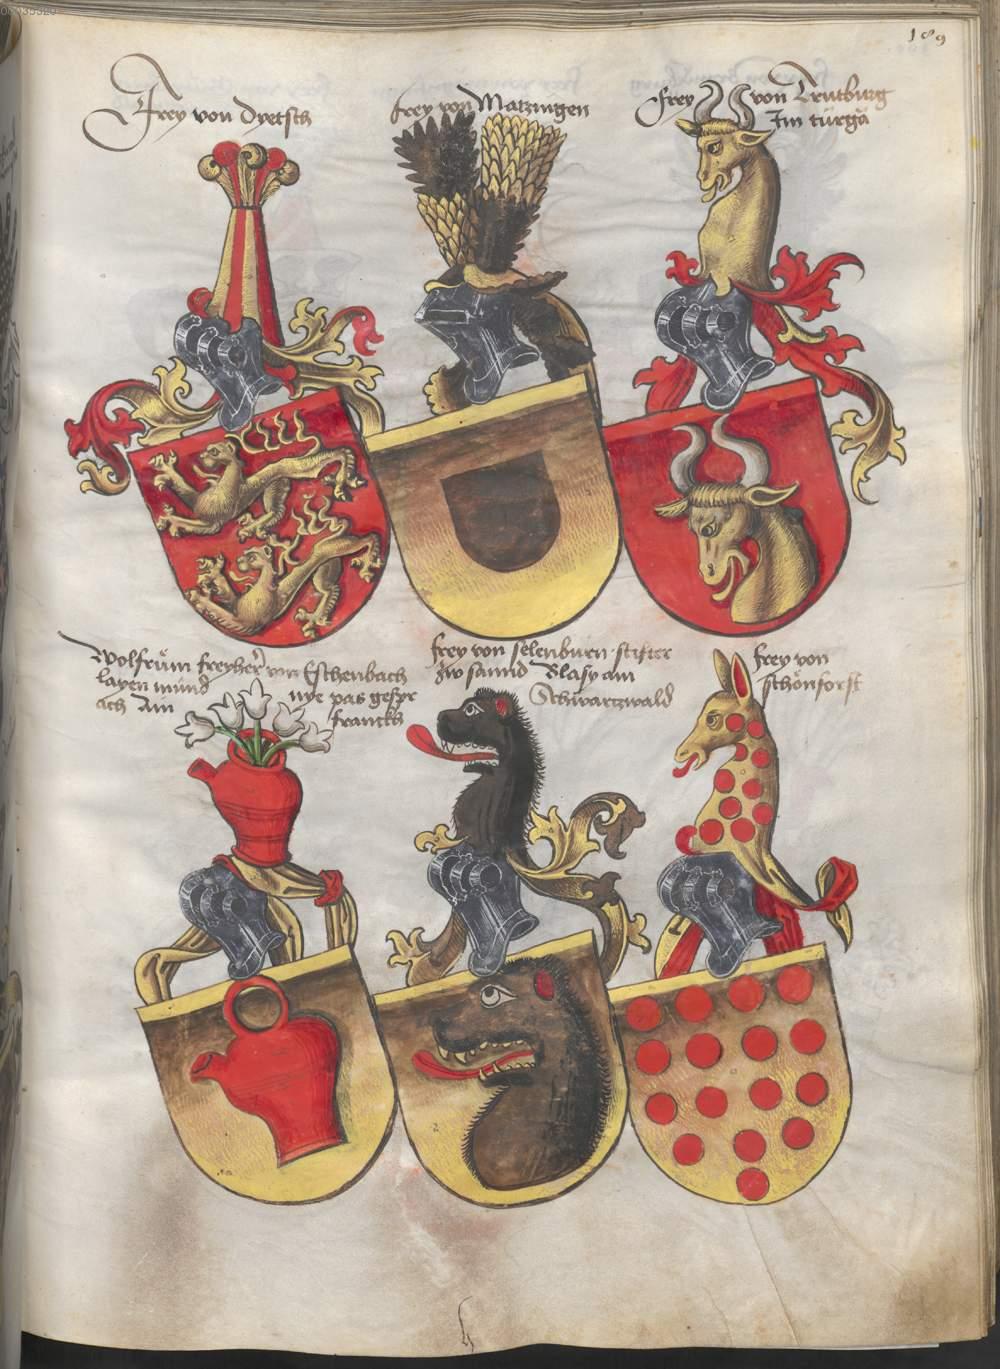 00035520
189
Frey von Dyetsch
frey von Matzingen
Frey von Leutburg
Im turga
Wolfrum freyher von Eschenbach
layen mund nye pas gespr
ach Am franckh
frey von selenburn stifter
zw sannd Blasy am
Schwartzwald
frey von
schönforst